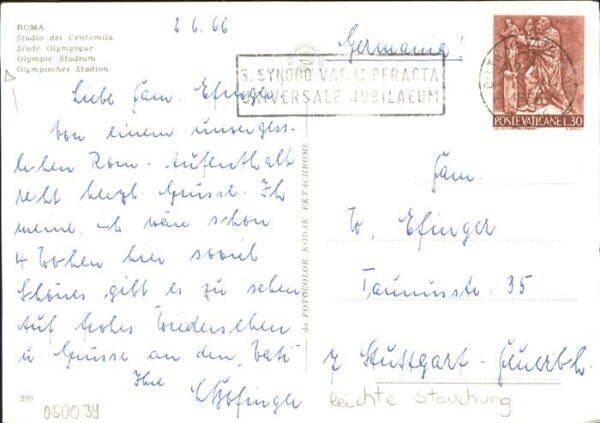 ROMA
Stadio dei Centomila
Stade Olympique
Olympic Stadium
Olympisches Stadion
2.6.66
Germania!
S. SYNODO VAT. II PERACTA
UNIVERSALE JUBILAEUM
POSTE VATICANE L.30
Liebe Fam. Efinger
Von einem unvergess-
lichen Rom-Aufenthalt
recht herzl. Grüsse. Ich
meine, ich wäre schon
4 Wochen hier soviel
Schönes gibt es zu sehen
Auf frohes Wiedersehen
u Grüsse an den "Vati"
Ihre
da FOTOCOLOR KODAK EKTACHROME
Fam.
W. Efinger
Taunusstr. 35
7 Stuttgart-Feuerb.
leichte Stauchung
299
050039